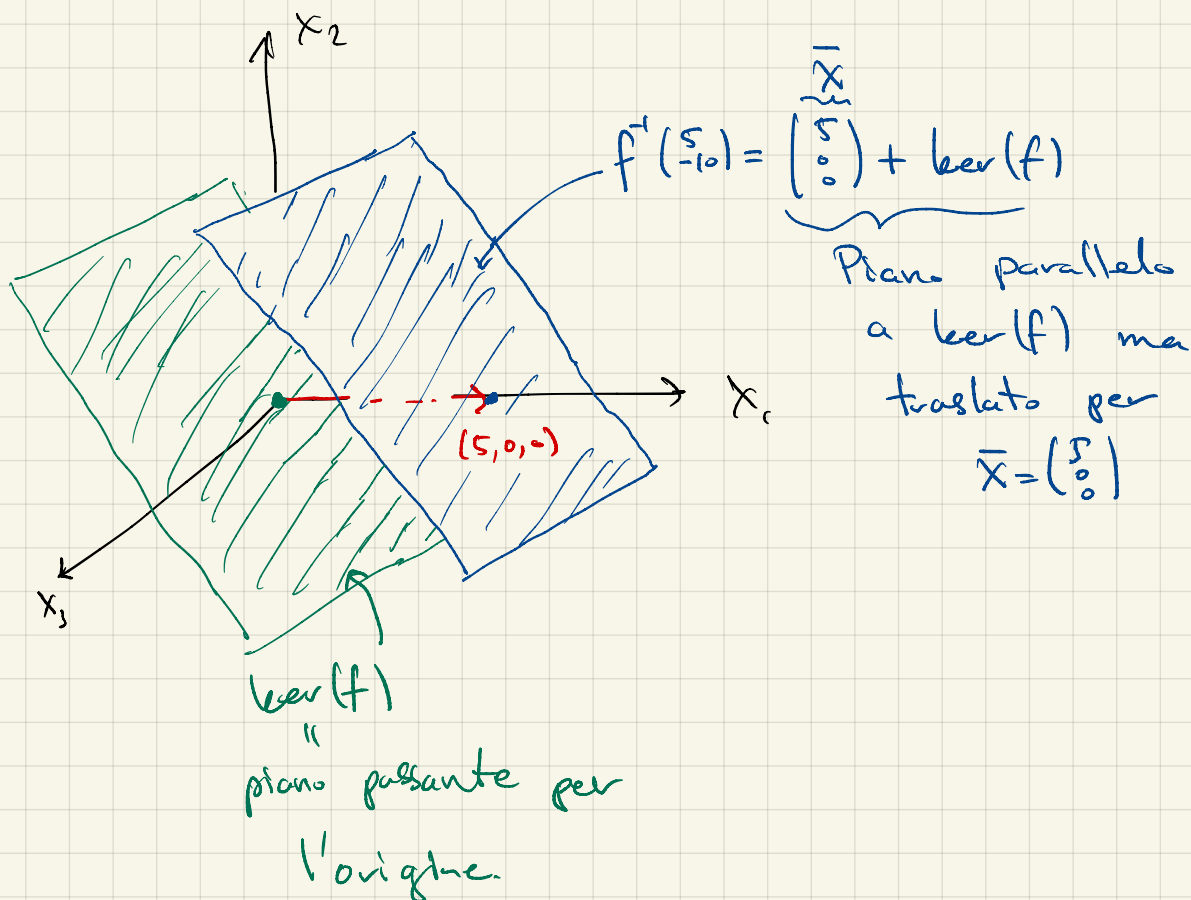 x₂
x̄
f⁻¹(5 -10) = (5 0 0) + ker(f)
Piano parallelo
a ker(f) ma
traslato per
x̄ = (5 0 0)
x₁
(5,0,0)
x₃
ker(f)
"
piano passante per
l'origine.